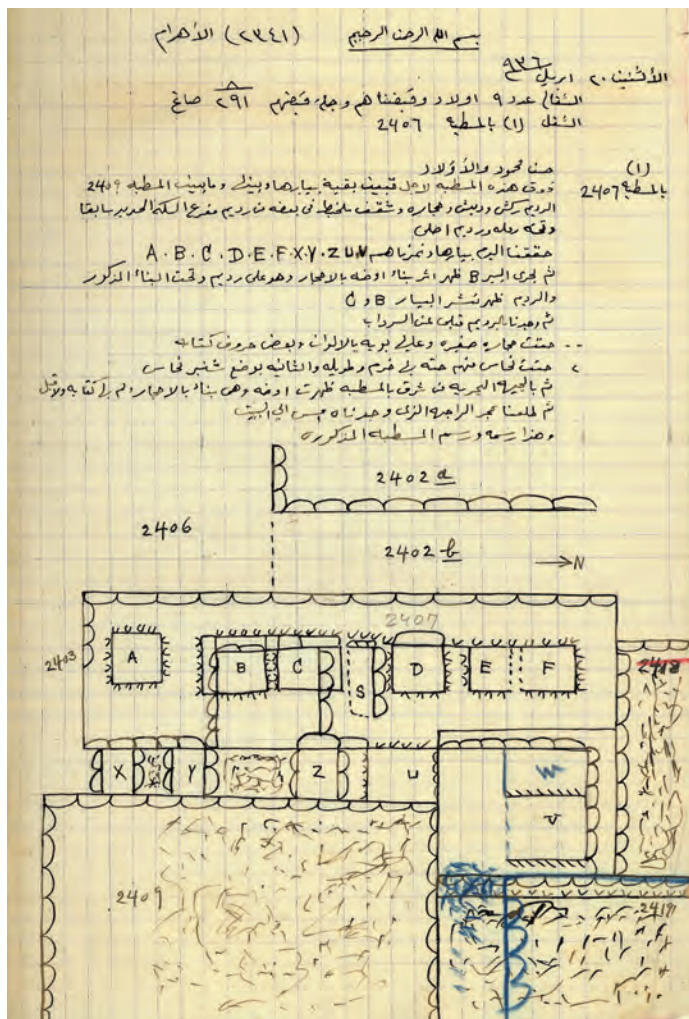 بسم الله الرحمن الرحيم (٢٣٤١) الأهرام
الأثنين ٢٠ ابريل ٩٣٦
الشغال عدد ٩ اولاد وقبضناهم وجملة قبضهم ٢٩١ صاغ
الشغل (١) بالمصطبه 2407
(١) حسن محمود والأولاد
بالمصطبه 2407 فوق هذه المصطبه لاجل تبين بقية بيارها وبينها وما بين المصطبه 2409
الرديم ركش ودبش وحجاره وشقف مختلط في بعضه من رديم مفرع السكه الحديد سابقا
وتحته رمله ورديم اصلي
حققنا اليوم بيارها ونمرناهم A·B·C·D·E·F·X·Y·Z U V
ثم بحرى البير B ظهر اثر بناء اوضه بالاحجار وهو على رديم وتحت البناء المذكور
والرديم ظهر نشر البيار B و C
ثم وجدنا بالرديم قبلى عن السرداب
٠٠ حتت حجاره صغيره وعليها بويه بالالوان وبعض حروف كتابه
٢ حتت نحاس منهم حته بها خرم وطويله والثانيه بوضع شنبر نحاس
ثم بالجهة البحريه من شرق بالمصطبه ظهرت اوضه وهى بناء بالاحجار
وهذا رسمه ورسم المصطبه المذكوره
2402 a
2406
2402 b → N
2407
2403 A B C S D E F 2418
X Y Z U W
V
2409 2419